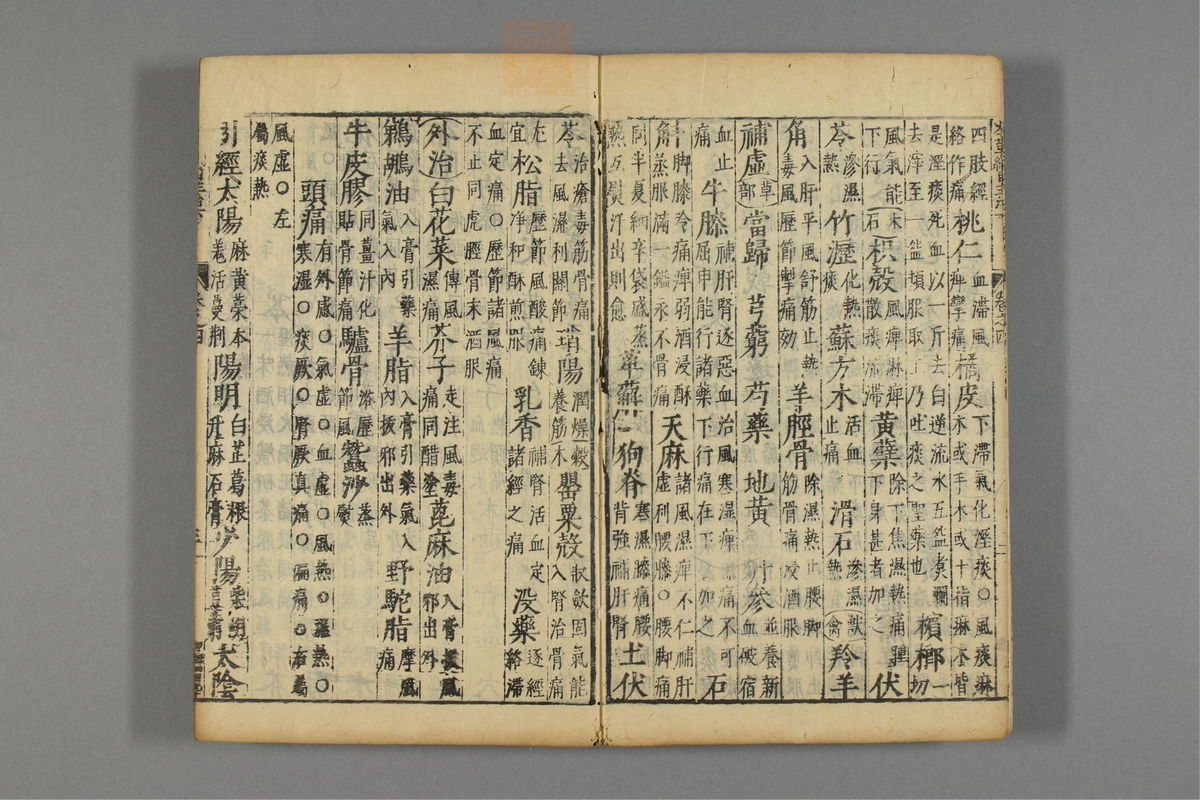 四肢經絡作痛桃仁血滯風痺攣痛橘皮下滯氣化溼痰○風痰麻木或手木或十指麻木皆
是溼痰死血以一斤去白逆流水五盌煑爛去滓至一盌頓服取吐乃吐痰之聖藥也檳榔一切
風氣能下行木石枳殼風痺淋痺散痰疏滯黃蘗除下焦濕熱痛腫下身甚者加之伏
苓滲濕熱竹瀝化熱痰蘇方木活血止痛滑石滲濕熱獸禽羚羊
角入肝平風舒筋止熱毒風歷節掣痛効羊脛骨除濕熱止腰脚筋骨痛浸酒服
補虛草部當歸芎藭芍藥地黃丹參並養新血破宿
血止痛牛膝補肝腎逐惡血治風寒濕痺痛不可屈申能行諸藥下行痛在下者加之石
斛脚膝冷痛痺弱酒浸酥蒸服滿一鎰永不骨痛天麻諸風濕痺不仁補肝虛利腰膝○腰脚痛
同半夏細辛袋盛蒸熱互熨汗出則愈萆薢狗脊寒濕膝痛腰背強補肝腎土伏
苓治瘡毒筋骨痛去風濕利關節瑣陽潤燥養筋穀木罌粟殼收斂固氣能入腎治骨痛
尤宜松脂歷節風酸痛鍊凈和酥煎服乳香補腎活血定諸經之痛没藥逐經絡滯
血定痛○歷節諸風痛不止同虎脛骨末酒服
外治白花菜傅風濕痛芥子走注風毒痛同醋塗蓖麻油入膏拔風邪出外
鵜鶘油入膏引藥氣入內羊脂入膏引藥氣入內拔邪出外野駝脂摩風痛
牛皮膠同薑汁化貼骨節痛驢骨浴歷節風蠶沙蒸熨
頭痛有外感○氣虛○血虛○風熱○濕熱○寒濕○痰厥○腎厥○真痛○偏痛○右屬
風虛○左屬痰熱
引經太陽麻黃藁本羌活蔓荆陽明白芷葛根升麻石膏少陽柴胡芎藭太陰